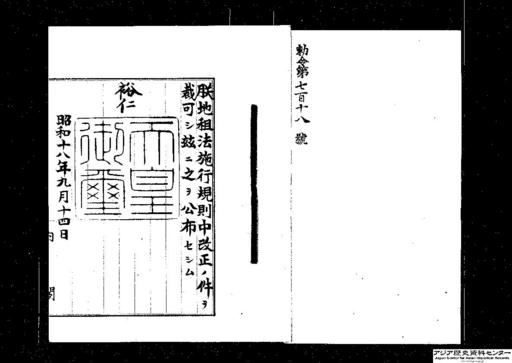 勅令第七百十八號
朕地租法施行規則中改正ノ件ヲ
裁可シ茲ニ之ヲ公布セシム
裕仁
天皇
御璽
昭和十八年九月十四日
内閣
アジア歴史資料センター
Japan Center for Asian Historical Records